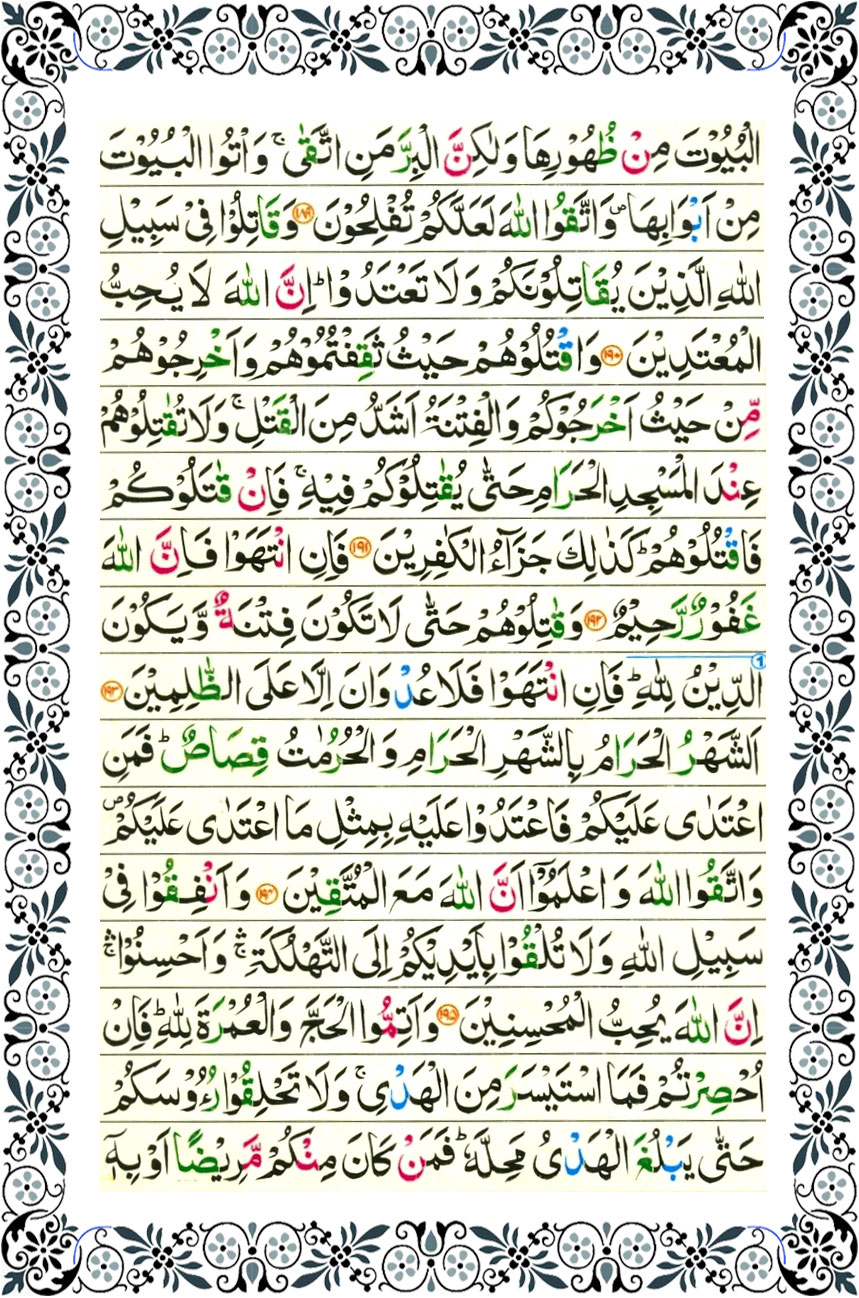 الْبُیُوْتَ مِنْ ظُهُوْرِهَا وَلٰكِنَّ الْبِرَّ مَنِ اتَّقٰی ۚ وَاْتُوا الْبُیُوْتَ
مِنْ اَبْوَابِهَا ۪ وَاتَّقُوا اللّٰهَ لَعَلَّكُمْ تُفْلِحُوْنَ ۱۸۹ وَقَاتِلُوْا فِیْ سَبِیْلِ
اللّٰهِ الَّذِیْنَ یُقَاتِلُوْنَكُمْ وَلَا تَعْتَدُوْا ؕ اِنَّ اللّٰهَ لَا یُحِبُّ
الْمُعْتَدِیْنَ ۱۹۰ وَاقْتُلُوْهُمْ حَیْثُ ثَقِفْتُمُوْهُمْ وَاَخْرِجُوْهُمْ
مِّنْ حَیْثُ اَخْرَجُوْكُمْ وَالْفِتْنَةُ اَشَدُّ مِنَ الْقَتْلِ ۚ وَلَا تُقٰتِلُوْهُمْ
عِنْدَ الْمَسْجِدِ الْحَرَامِ حَتّٰی یُقٰتِلُوْكُمْ فِیْهِ ۚ فَاِنْ قٰتَلُوْكُمْ
فَاقْتُلُوْهُمْ ؕ كَذٰلِكَ جَزَآءُ الْكٰفِرِیْنَ ۱۹۱ فَاِنِ انْتَهَوْا فَاِنَّ اللّٰهَ
غَفُوْرٌ رَّحِیْمٌ ۱۹۲ وَقٰتِلُوْهُمْ حَتّٰی لَا تَكُوْنَ فِتْنَةٌ وَّیَكُوْنَ
الدِّیْنُ لِلّٰهِ ؕ فَاِنِ انْتَهَوْا فَلَا عُدْوَانَ اِلَّا عَلَی الظّٰلِمِیْنَ ۱۹۳
اَلشَّهْرُ الْحَرَامُ بِالشَّهْرِ الْحَرَامِ وَالْحُرُمٰتُ قِصَاصٌ ؕ فَمَنِ
اعْتَدٰی عَلَیْكُمْ فَاعْتَدُوْا عَلَیْهِ بِمِثْلِ مَا اعْتَدٰی عَلَیْكُمْ ۪
وَاتَّقُوا اللّٰهَ وَاعْلَمُوْۤا اَنَّ اللّٰهَ مَعَ الْمُتَّقِیْنَ ۱۹۴ وَاَنْفِقُوْا فِیْ
سَبِیْلِ اللّٰهِ وَلَا تُلْقُوْا بِاَیْدِیْكُمْ اِلَی التَّهْلُكَةِ ۛ وَاَحْسِنُوْا ۛ
اِنَّ اللّٰهَ یُحِبُّ الْمُحْسِنِیْنَ ۱۹۵ وَاَتِمُّوا الْحَجَّ وَالْعُمْرَةَ لِلّٰهِ ؕ فَاِنْ
اُحْصِرْتُمْ فَمَا اسْتَیْسَرَ مِنَ الْهَدْیِ ۚ وَلَا تَحْلِقُوْا رُءُوْسَكُمْ
حَتّٰی یَبْلُغَ الْهَدْیُ مَحِلَّهٗ ؕ فَمَنْ كَانَ مِنْكُمْ مَّرِیْضًا اَوْ بِهٖۤ